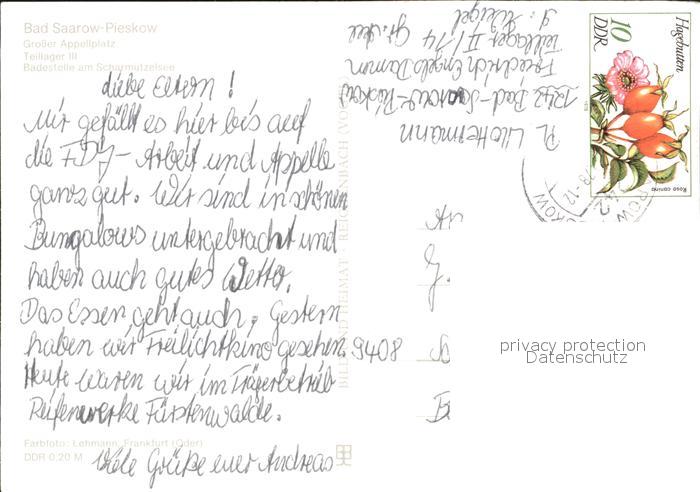 Bad Saarow-Pieskow
Großer Appellplatz
Teillager III
Badestelle am Scharmützelsee
Liebe Eltern!
Mir gefällt es hier bis auf
die FDJ-Arbeit und Appelle
ganz gut. Wir sind in schönen
Bungalows untergebracht und
haben auch gutes Wetter.
Das Essen geht auch, Gestern
haben wir Freilichtkino gesehen.
Heute waren wir im Trägerbetrieb
Reifenwerke Fürstenwalde.
Viele Grüße euer Andreas
Farbfoto: Lehmann, Frankfurt (Oder)
DDR 0,20 M
BILD UND HEIMAT REICHENBACH (VOGTL)
Teillager II/14
Friedrich Engels Damm
1242 Bad-Saarow-Pieskow
Hagebutten
10
DDR
Rosa canina
An
9408
privacy protection
Datenschutz